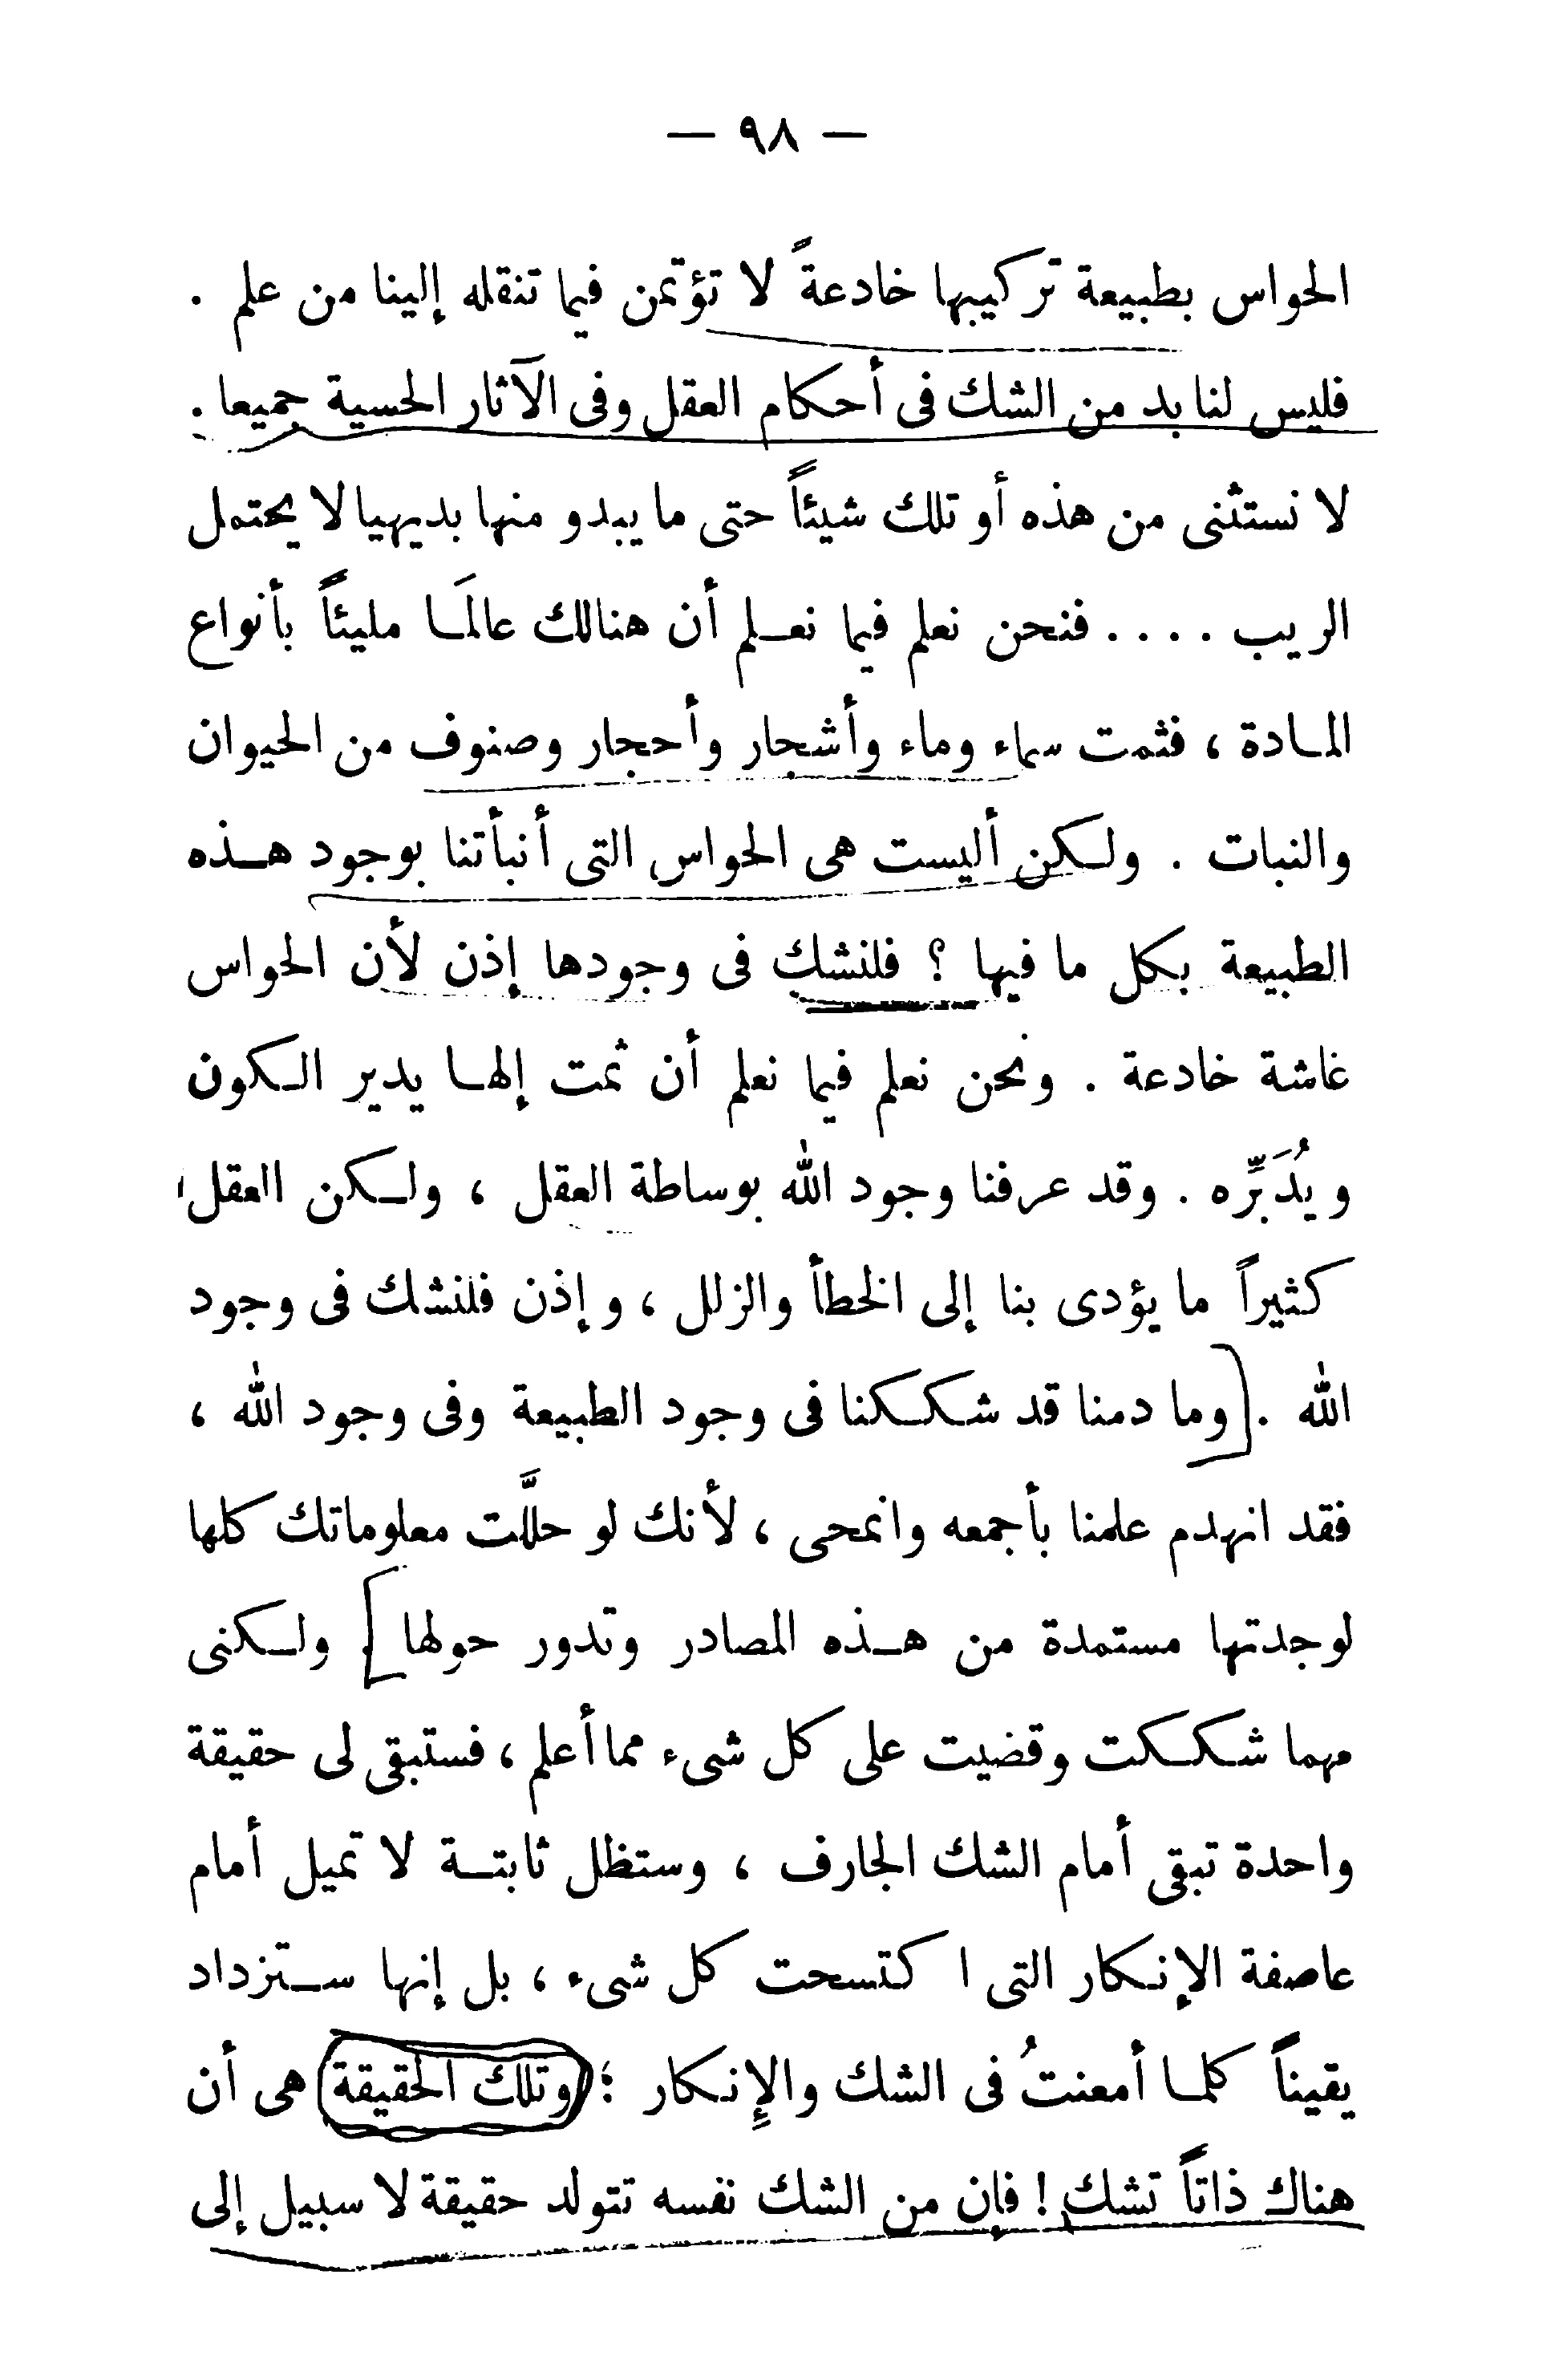 — ٩٨ —
الحواس بطبيعة تركيبها خادعةً لا تؤتمن فيما تنقله إلينا من علم .
فليس لنا بد من الشك فى أحكام العقل وفى الآثار الحسية جميعا .
لا نستثنى من هذه أو تلك شيئاً حتى ما يبدو منها بديهيا لا يحتمل
الريب . . . . فنحن نعلم فيما نعلم أن هنالك عالمَا مليئاً بأنواع
المادة ، فثمت سماء وماء وأشجار وأحجار وصنوف من الحيوان
والنبات . ولكن أليست هى الحواس التى أنبأتنا بوجود هذه
الطبيعة بكل ما فيها ؟ فلنشك فى وجودها إذن لأن الحواس
غاشة خادعة . ونحن نعلم فيما نعلم أن ثمت إلها يدير الكون
ويُدَبِّره . وقد عرفنا وجود الله بوساطة العقل ، ولكن العقل
كثيراً ما يؤدى بنا إلى الخطأ والزلل ، وإذن فلنشك فى وجود
الله . [وما دمنا قد شككنا فى وجود الطبيعة وفى وجود الله ،
فقد انهدم علمنا بأجمعه وانمحى ، لأنك لو حللَّت معلوماتك كلها
لوجدتها مستمدة من هذه المصادر وتدور حولها] . ولكنى
مهما شككت وقضيت على كل شىء مما أعلم ، فستبقى لى حقيقة
واحدة تبقى أمام الشك الجارف ، وستظل ثابتة لا تميل أمام
عاصفة الإنكار التى اكتسحت كل شىء ، بل إنها ستزداد
يقيناً كلما أمعنتُ فى الشك والإِنكار ؛ وتلك الحقيقة هى أن
هناك ذاتاً تشك ! فإن من الشك نفسه تتولد حقيقة لا سبيل إلى